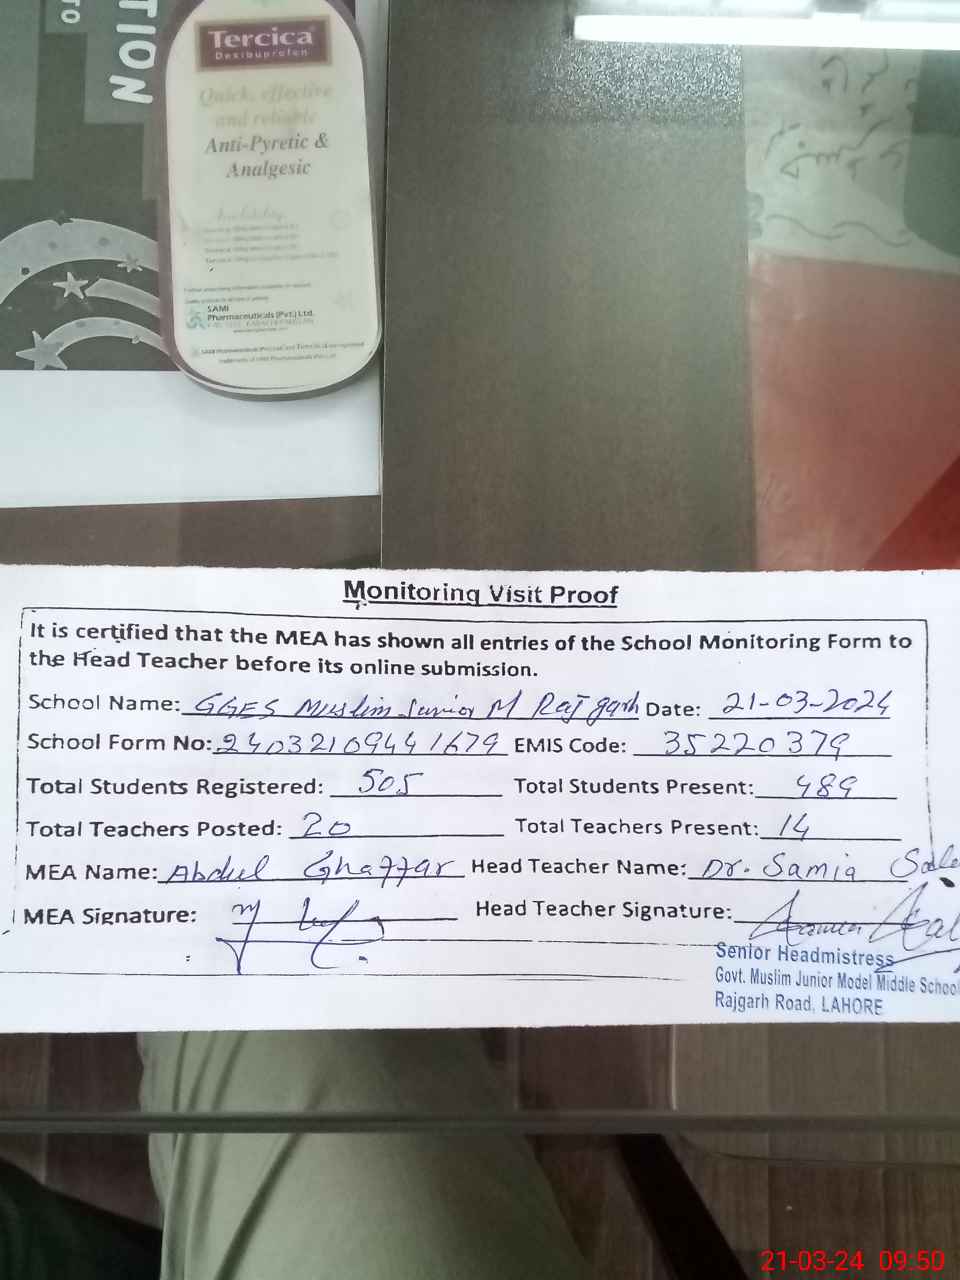 TO
TION
Tercica
Dexibuprofen
Quick, effective
and reliable
Anti-Pyretic &
Analgesic
SAMI
Pharmaceuticals (Pvt.) Ltd.
Monitoring Visit Proof
It is certified that the MEA has shown all entries of the School Monitoring Form to
the Head Teacher before its online submission.
School Name: GGES Muslim Junior M Rajgarh Date: 21-03-2024
School Form No: 24032109441679 EMIS Code: 35220379
Total Students Registered: 505 Total Students Present: 489
Total Teachers Posted: 20 Total Teachers Present: 14
MEA Name: Abdul Ghaffar Head Teacher Name: Dr. Samia
MEA Signature: Head Teacher Signature:
Senior Headmistress
Govt. Muslim Junior Model Middle School
Rajgarh Road, LAHORE
21-03-24 09:50